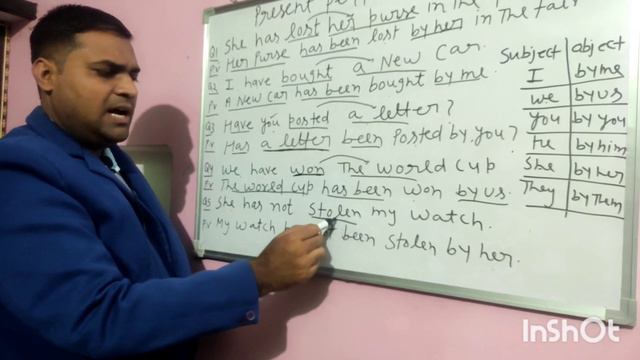 Present
Q1 She has lost her purse in the
PV Her Purse has been lost by her in The fair
Q2 I have bought a New Car.
PV A New Car has been bought by me.
Q3 Have you posted a letter?
PV Has a letter been Posted by you?
Q4 we have won The world cup
PV The world cup has been won by us.
Q5 She has not stolen my watch.
PV My watch been stolen by her.
Subject object
I by me
we by us
you by you
He by him
She by her
They by Them
InShOt